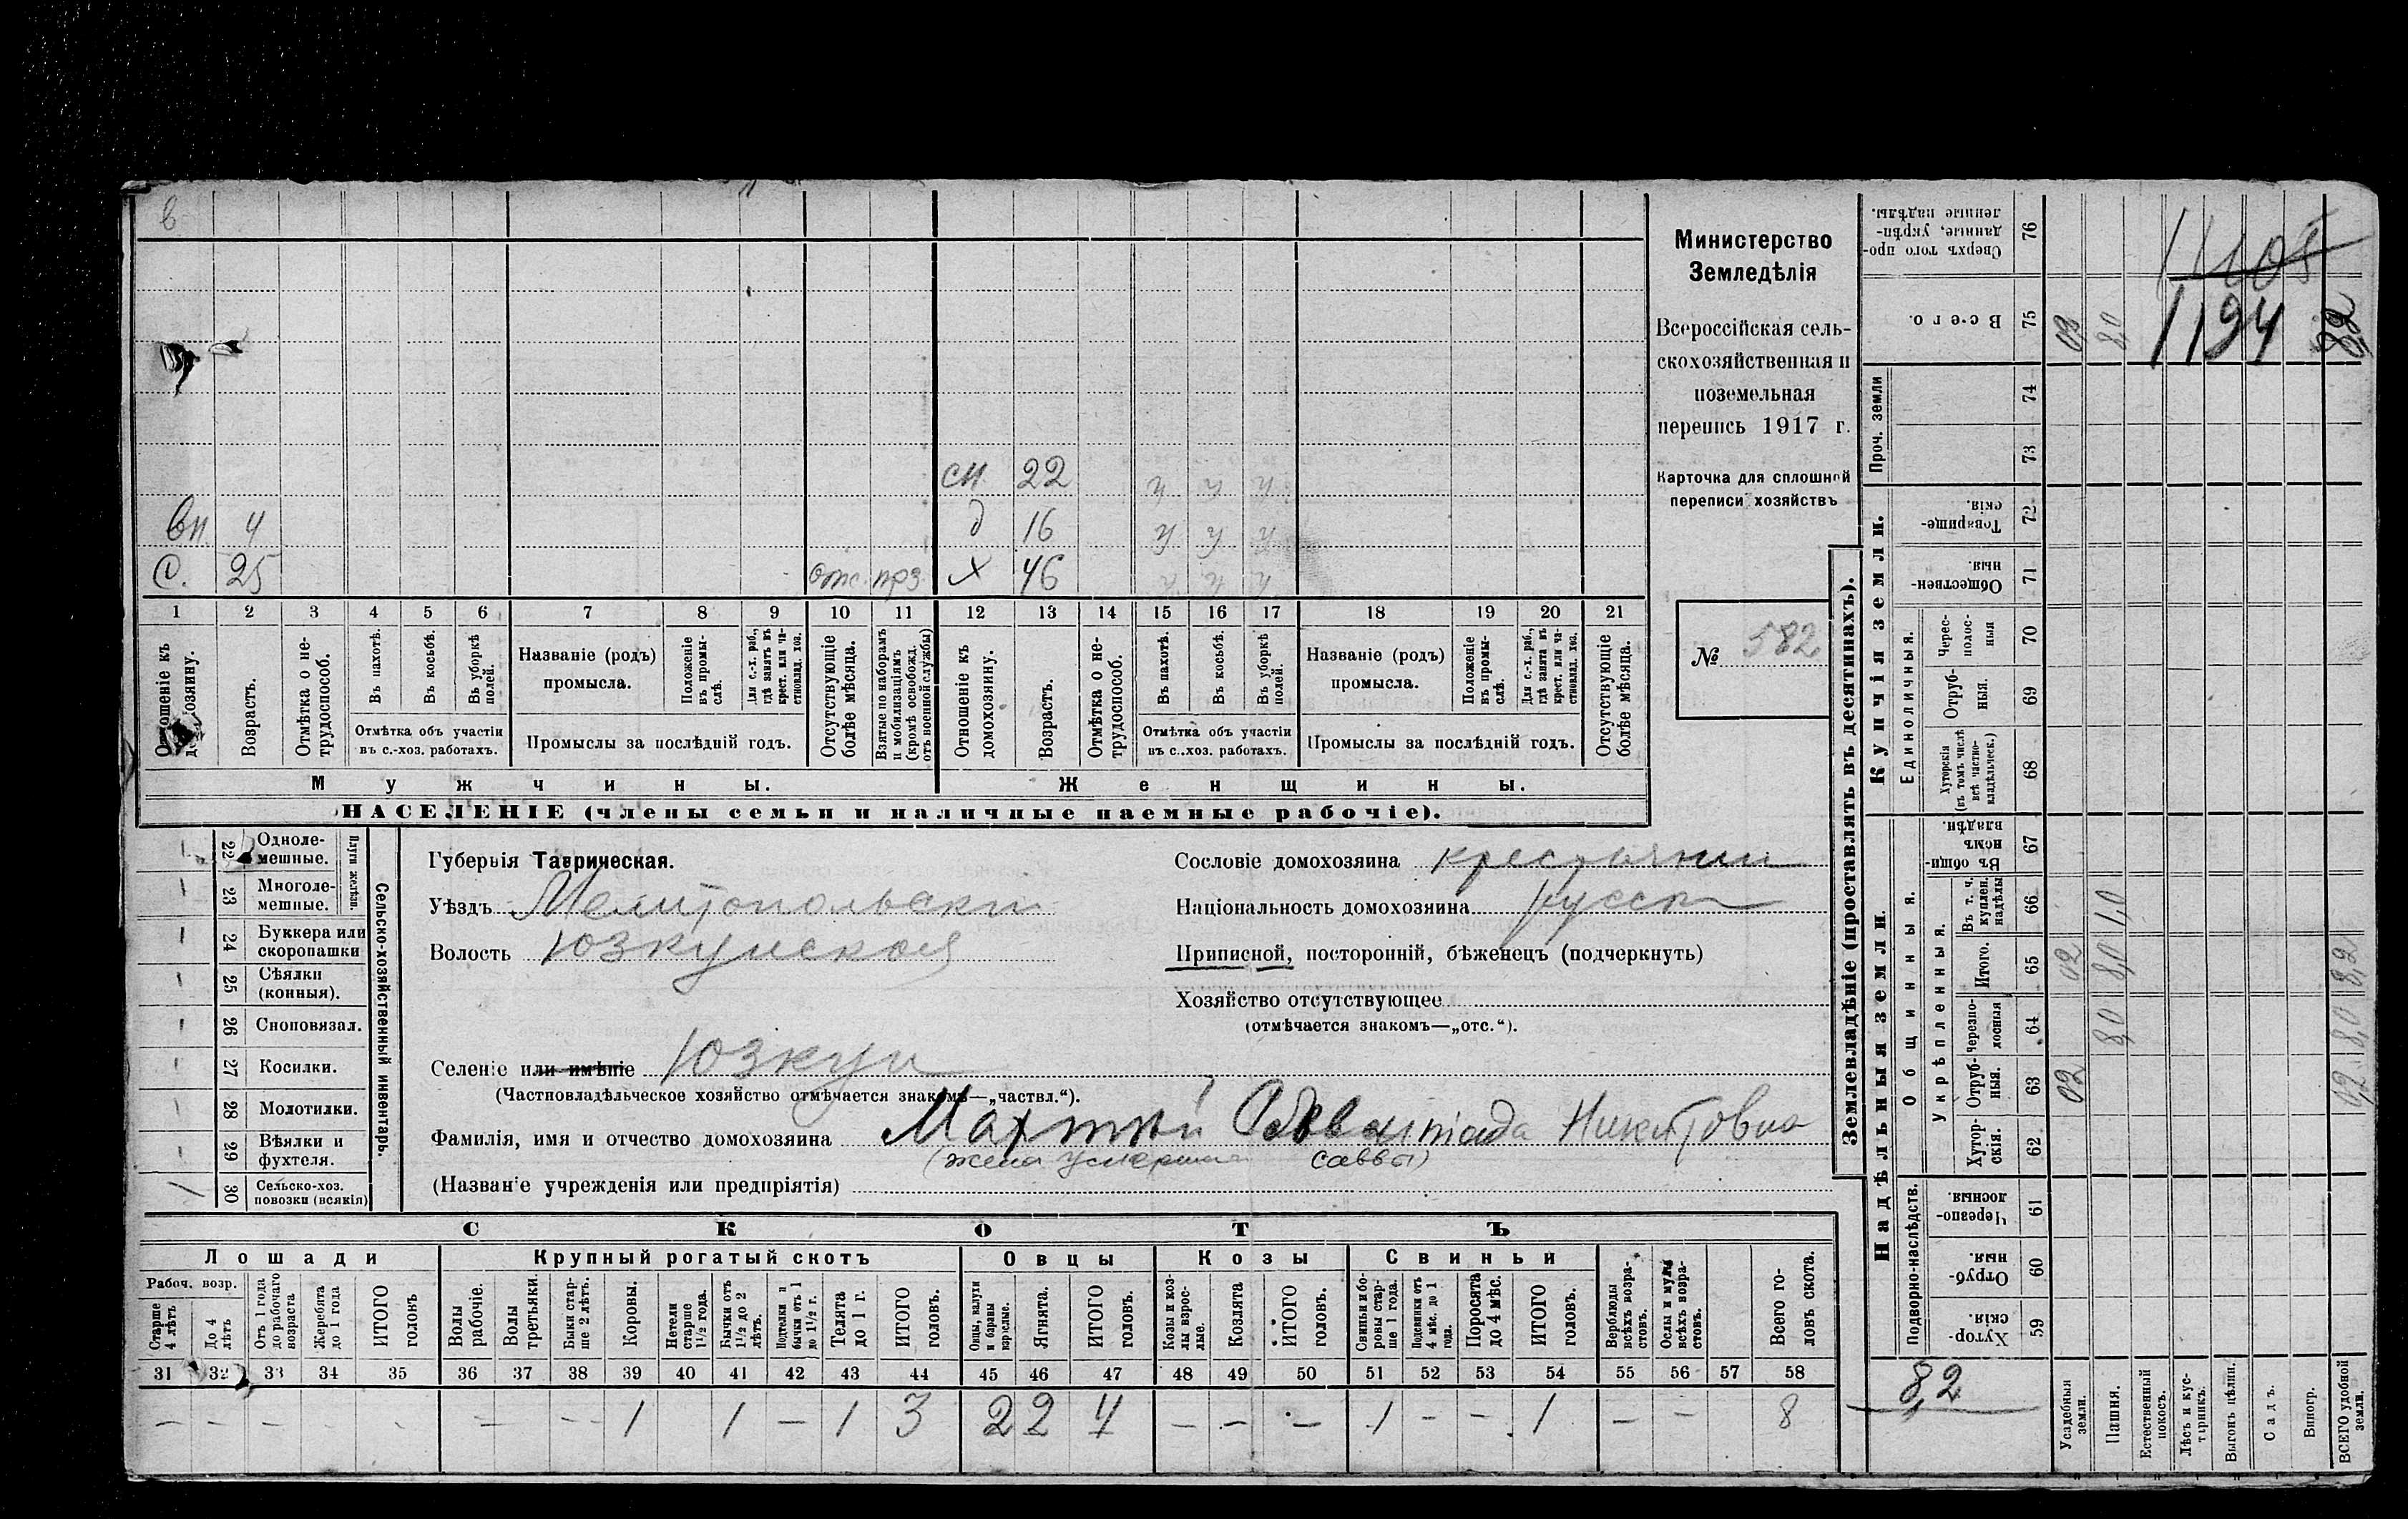 в
сн 22 у у у
вн 4 д 16 у у у
С. 25 отс. прз. х 46 у у у
1 2 3 4 5 6 7 8 9 10 11 12 13 14 15 16 17 18 19 20 21
Отношеніе къ домохозяину.
Возрастъ.
Отмѣтка о нетрудоспособ.
Въ пахотѣ.
Въ косьбѣ.
Въ уборкѣ полей.
Отмѣтка объ участіи въ с.-хоз. работахъ.
Названіе (родъ) промысла.
Положеніе въ промыслѣ.
Для с.-х. раб., гдѣ занятъ въ крест. или частновлад. хоз.
Промыслы за послѣдній годъ.
Отсутствующіе болѣе мѣсяца.
Взятые по наборамъ и мобилизаціямъ (кромѣ освобожд. отъ военной службы)
Отношеніе къ домохозяину.
Возрастъ.
Отмѣтка о нетрудоспособ.
Въ пахотѣ.
Въ косьбѣ.
Въ уборкѣ полей.
Отмѣтка объ участіи въ с.-хоз. работахъ.
Названіе (родъ) промысла.
Положеніе въ промыслѣ.
Для с.-х. раб., гдѣ занята въ крест. или частновлад. хоз.
Промыслы за послѣдній годъ.
Отсутствующіе болѣе мѣсяца.
Мужчины.
Женщины.
НАСЕЛЕНІЕ (члены семьи и наличные наемные рабочіе).
Министерство
Земледѣлія
Всероссійская сель-
скохозяйственная и
поземельная
перепись 1917 г.
Карточка для сплошной
переписи хозяйствъ
№ 582
Плуги желѣзн.
22 Однолемешные.
23 Многолемешные.
24 Буккера или скоропашки
25 Сѣялки (конныя).
26 Сноповязал.
27 Косилки.
28 Молотилки.
29 Вѣялки и фухтеля.
/ 30 Сельско-хоз. повозки (всякія)
Сельско-хозяйственный инвентарь.
Губернія Таврическая.
Уѣздъ Мелитопольски
Волость Юзкуйская
Селеніе или имѣніе Юзкуи
(Частновладѣльческое хозяйство отмѣчается знакомъ—„частвл.“).
Фамилія, имя и отчество домохозяина Никитовна
(жена умершаго Саввы)
(Названіе учрежденія или предпріятія)
Сословіе домохозяина крестьянин
Національность домохозяина русски
Приписной, посторонній, бѣженецъ (подчеркнуть)
Хозяйство отсутствующее
(отмѣчается знакомъ—„отс.“).
СКОТЪ
Лошади
Крупный рогатый скотъ
Овцы
Козы
Свиньи
Рабоч. возр.
Старше 4 лѣтъ
До 4 лѣтъ
Отъ 1 года до рабочаго возраста
Жеребята до 1 года
ИТОГО головъ
Волы рабочіе.
Волы третьяки.
Быки старше 2 лѣтъ.
Коровы.
Нетели старше 1½ года.
Бычки отъ 1½ до 2 лѣтъ.
Подтелки и бычки отъ 1 до 1½ г.
Телята до 1 г.
ИТОГО головъ.
Овцы, валухи и бараны взрослые.
Ягнята.
ИТОГО головъ.
Козы и козлы взрослые.
Козлята
ИТОГО головъ.
Свиньи и боровы старше 1 года.
Подсвинки отъ 4 мѣс. до 1 года.
Поросята до 4 мѣс.
ИТОГО головъ.
Верблюды всѣхъ возрастовъ.
Ослы и мулы всѣхъ возрастовъ.
Всего головъ скота.
31 32 33 34 35 36 37 38 39 40 41 42 43 44 45 46 47 48 49 50 51 52 53 54 55 56 57 58
– – – – – – 1 1 – 1 3 2 2 4 – – – 1 – – 1 – – 8
Землевладѣніе (проставлять въ десятинахъ).
Надѣльныя земли.
Купчія земли.
Проч. земли
Подворно-наслѣдств.
Общинныя.
Укрѣпленныя.
Единоличныя.
Хуторскія. 59
Отрубныя. 60
Черезполосныя. 61
Хуторскія. 62
Отрубныя. 63 02 0,2
Черезполосныя 64 8,0 8,0
Итого. 65 02 8,0 8,2
Въ т. ч. куплен. надѣлы 66 1,0
Въ общинномъ владѣн. 67
Хуторскія (въ томъ числѣ всѣ частновладѣльческ.) 68
Отрубныя. 69
Чересполосныя 70
Общественныя. 71
Товарищескія. 72
73
74
Всего. 75 8,0 1194 8,2
Сверхъ того проданные, укрѣпленные надѣлы. 76
8,2
Усадебныя земли.
Пашня.
Естественный покосъ.
Лѣсъ и кустарникъ.
Выгонъ цѣлин.
Садъ.
Виногр.
ВСЕГО удобной земли.